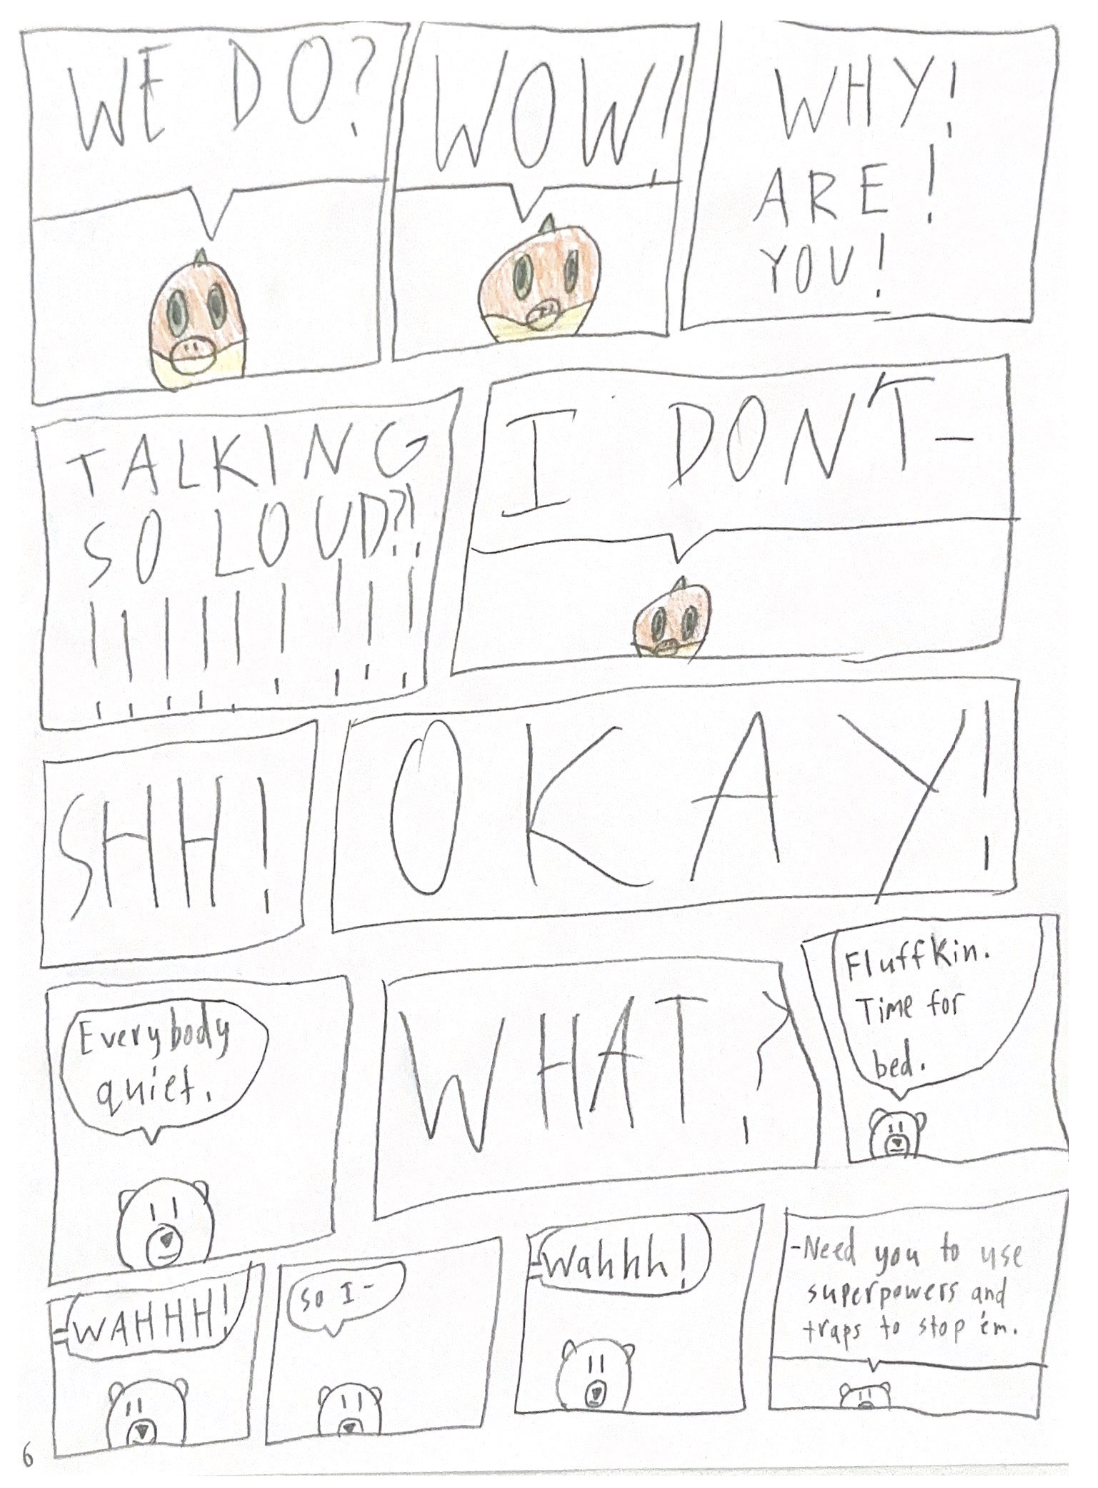 WE DO?
WOW!
WHY!
ARE!
YOU!
TALKING
SO LOUD?!
!!!!!!!!
I DON'T-
SHH!
OKAY!
Everybody
quiet.
WHAT?
Fluffkin.
Time for
bed.
WAHHH!
SO I-
Wahhh!
-Need you to use
superpowers and
traps to stop 'em.
6